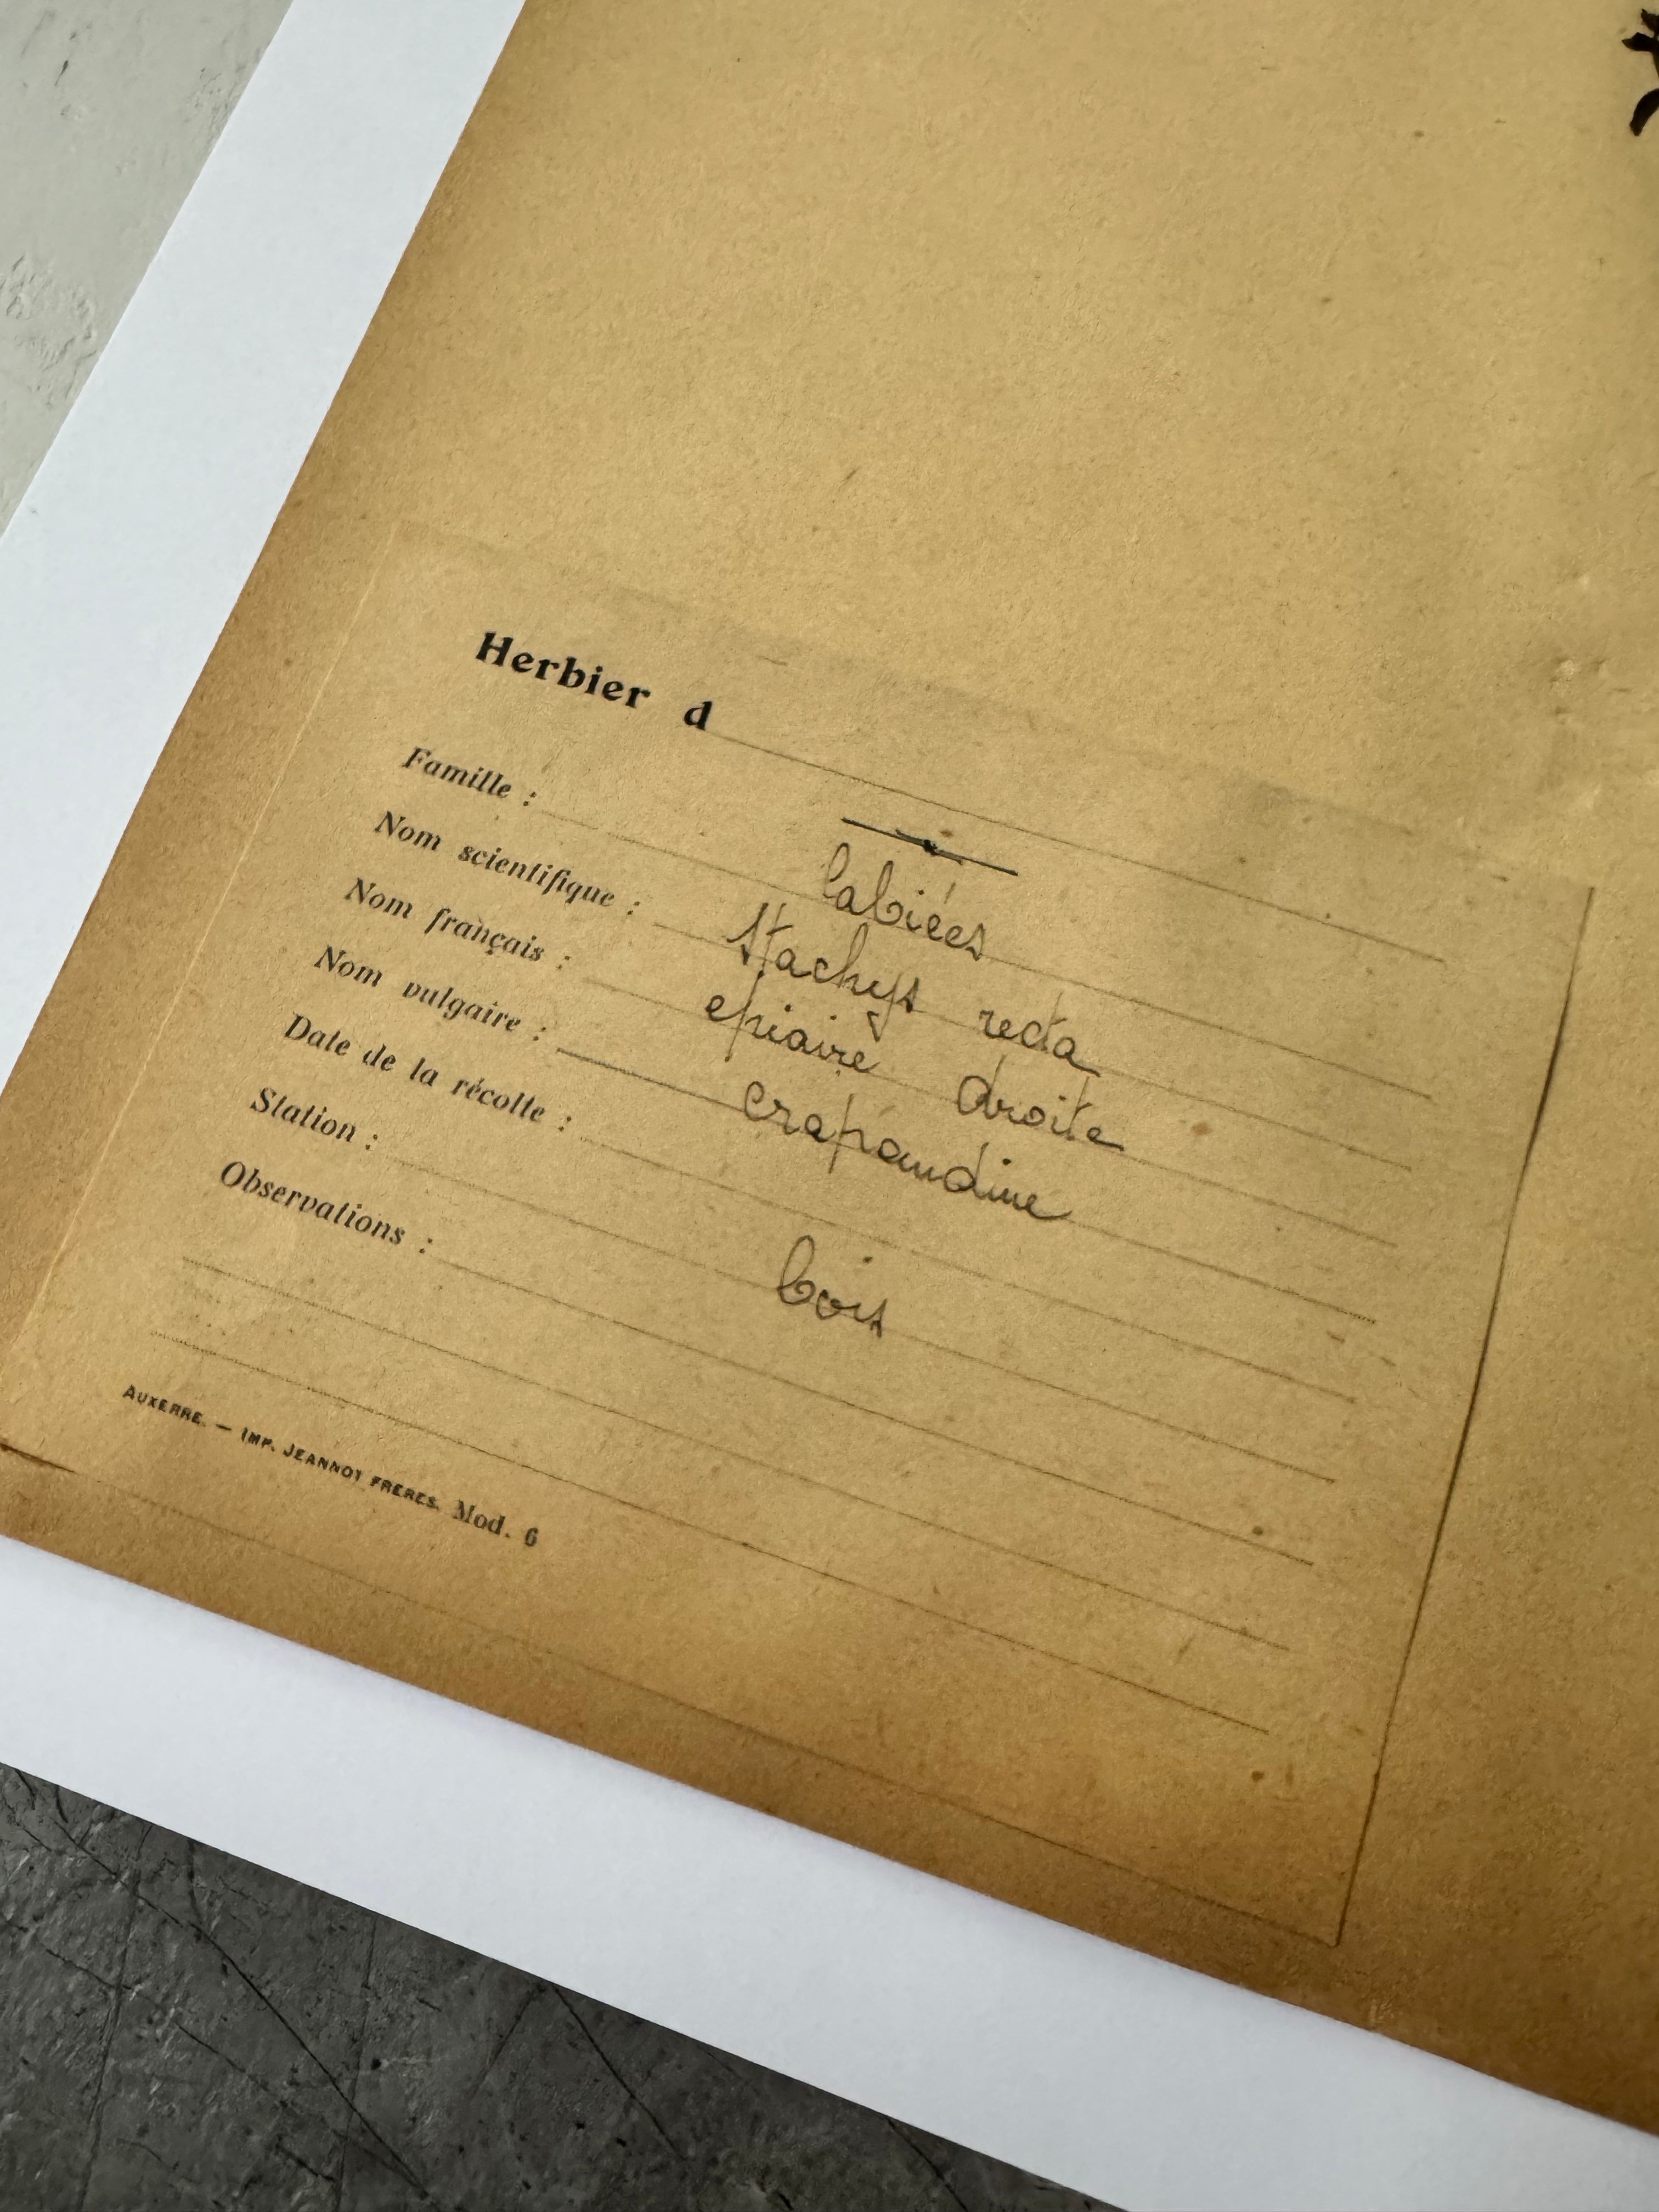 Herbier d
Famille : labiées
Nom scientifique : Stachys recta
Nom français : epiaire droite
Nom vulgaire : crapaudine
Date de la récolte :
Station : bois
Observations :
AUXERRE. — IMP. JEANNOT FRERES. Mod. 6